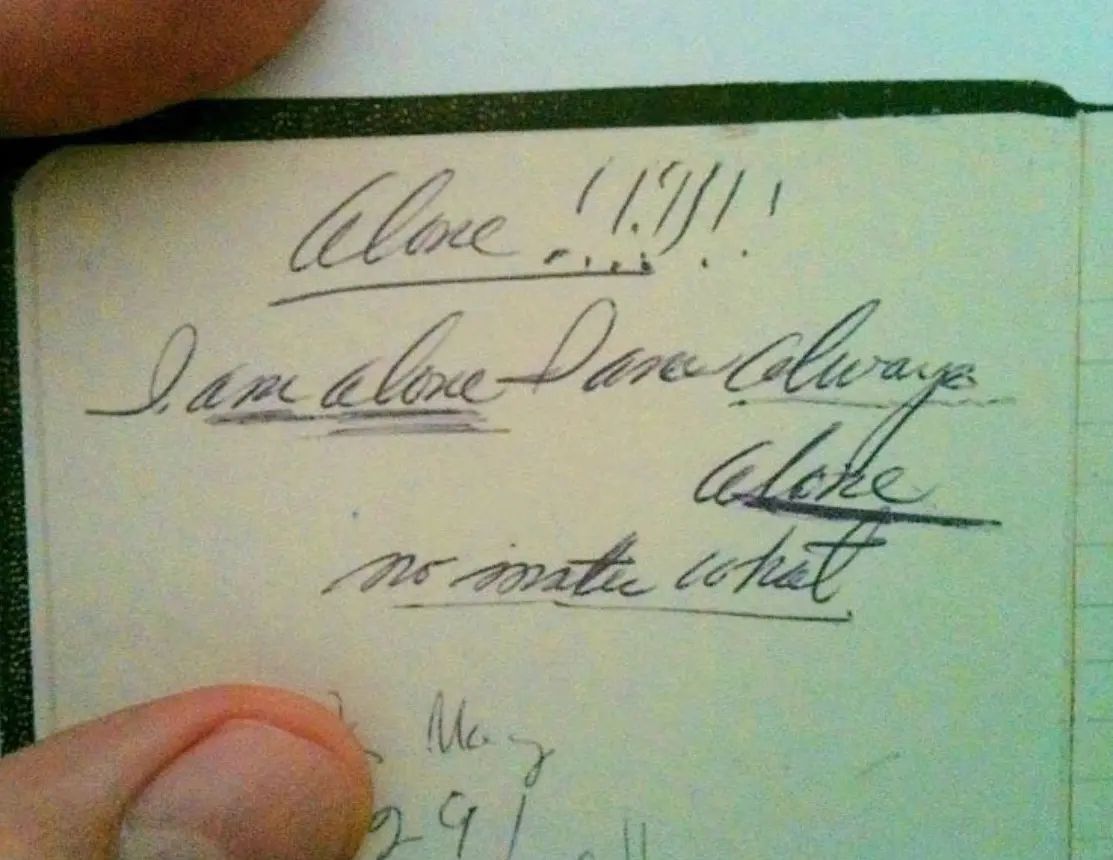 Alone !!!!!!!
I am alone I am always
alone
no matter what
May
29